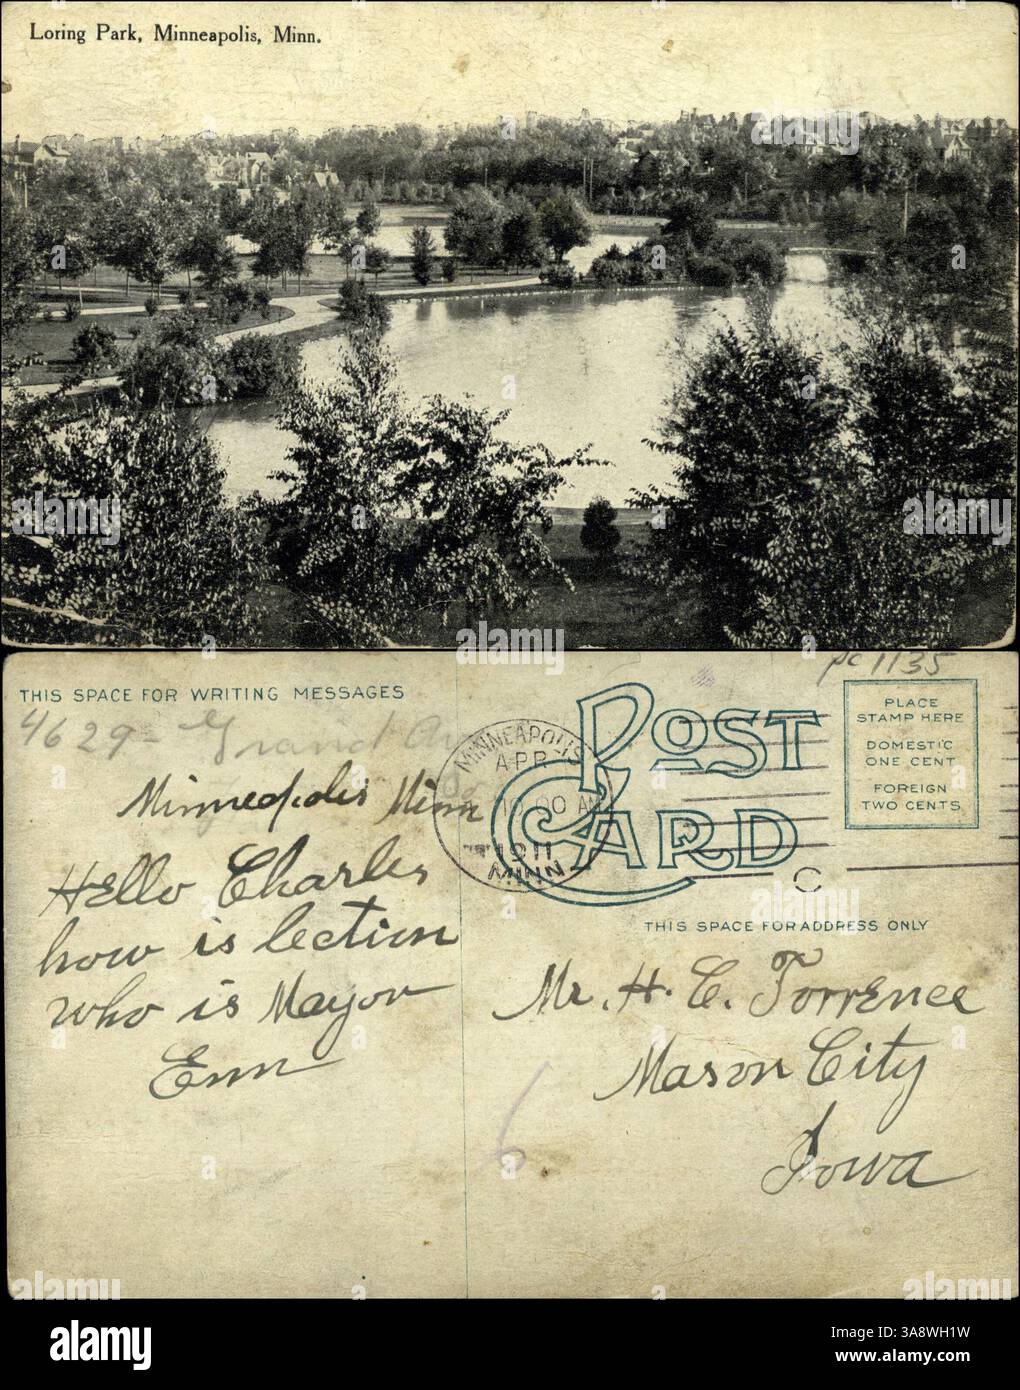 Loring Park, Minneapolis, Minn.
pc 1135
THIS SPACE FOR WRITING MESSAGES
4629 - Grand Av
Minneapolis Minn
Hello Charles
how is lection
who is Mayor
Enn
MINNEAPOLIS
APR
10 00 AM
1911
MINN
POST CARD
PLACE
STAMP HERE
DOMESTIC
ONE CENT
FOREIGN
TWO CENTS
THIS SPACE FOR ADDRESS ONLY
Mr. H. C. Torrence
Mason City
Iowa
6
alamy
Image ID: 3A8WH1W
www.alamy.com